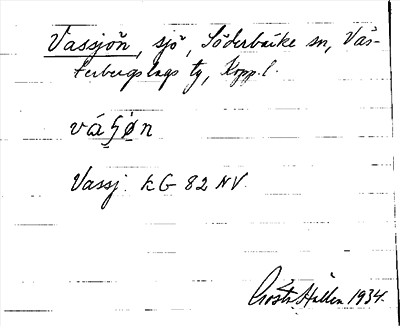 Vassjön, sjö, Söderbärke sn, Väs-
terbergslags tg, Kopp. l.
vá ʂøn
Vassj. kG 82 NV.
Gösta Hallén 1934.